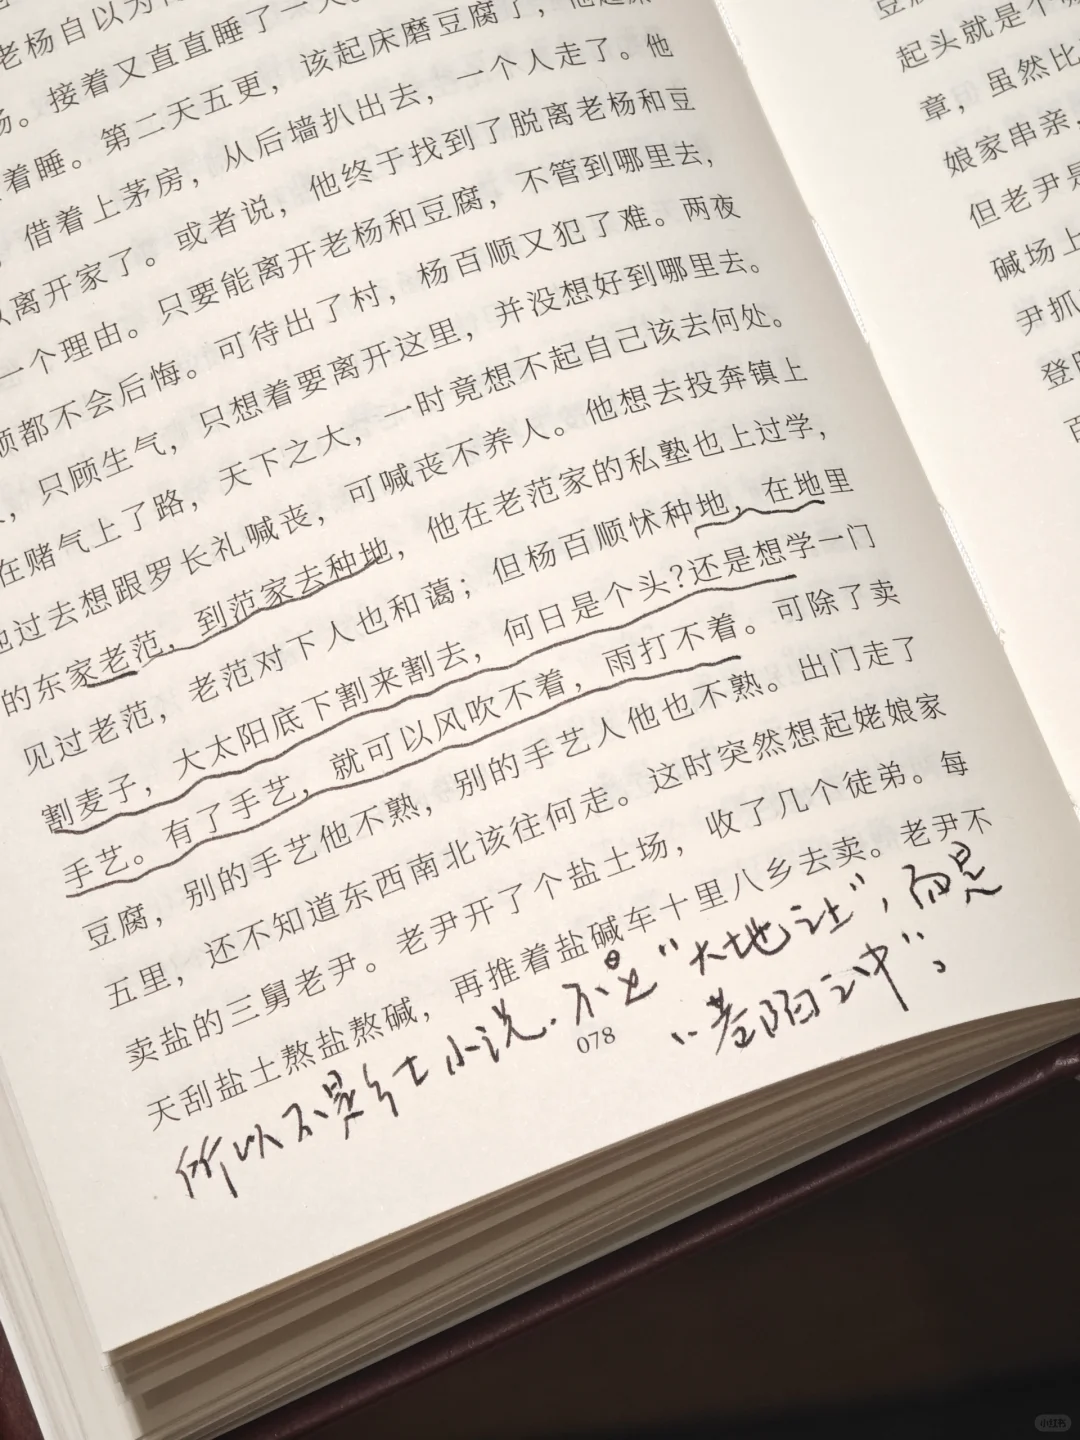 老杨自以为
汤。接着又直直睡了一天。
着睡。第二天五更，该起床磨豆腐了，他起床
，借着上茅房，从后墙扒出去，一个人走了。他
离开家了。或者说，他终于找到了脱离老杨和豆
一个理由。只要能离开老杨和豆腐，不管到哪里去，
顺都不会后悔。可待出了村，杨百顺又犯了难。两夜
，只顾生气，只想着要离开这里，并没想好到哪里去。
在赌气上了路，天下之大，一时竟想不起自己该去何处。
他过去想跟罗长礼喊丧，可喊丧不养人。他想去投奔镇上
的东家老范，到范家去种地，他在老范家的私塾也上过学，
见过老范，老范对下人也和蔼；但杨百顺怵种地，在地里
割麦子，大太阳底下割来割去，何日是个头？还是想学一门
手艺。有了手艺，就可以风吹不着，雨打不着。可除了卖
豆腐，别的手艺他不熟，别的手艺人他也不熟。出门走了
五里，还不知道东西南北该往何走。这时突然想起姥娘家
卖盐的三舅老尹。老尹开了个盐土场，收了几个徒弟。每
天刮盐土熬盐熬碱，再推着盐碱车十里八乡去卖。老尹不
078
所以不是乡土小说. 不是"大地之上"，而是
"巷陌之中"。
豆腐
起头就是个
章，虽然比
娘家串亲，
但老尹是
碱场上
尹抓
登
百
小红书